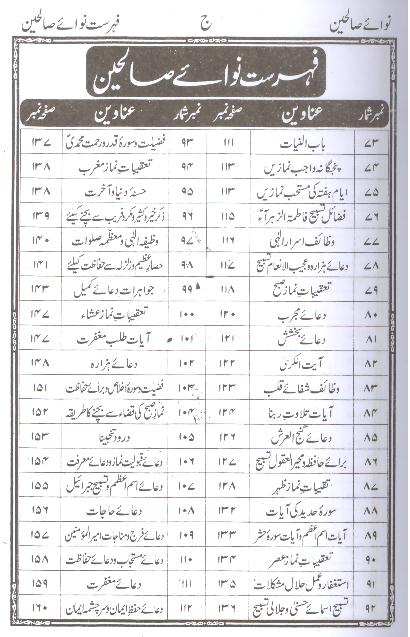 نوائے صالحین ج فہرست نوائے صالحین
فہرست نوائے صالحین
نمبر شمار عناوین صفحہ نمبر نمبر شمار عناوین صفحہ نمبر
۷۳ باب النیات ۱۱۱ ۹۳ فضیلت وسورۂ قدر ورحمت محمدیؐ ۱۳۷
۷۴ پنجگانہ واجب نمازیں ۱۱۳ ۹۴ تعقیبات نماز مغرب ۱۳۸
۷۵ ایام ہفتہ کی مستحب نمازیں ۱۱۳ ۹۵ حسنۂ دنیا و آخرت ۱۳۸
۷۶ فضائل تسبیح فاطمۃ الزہراؑ ۱۱۵ ۹۶ ذکر خیر وکثیر وکر وفریب سے بچنے کیلئے ۱۳۹
۷۷ وظائف اسرار الٰہی ۱۱۶ ۹۷ وظیفہ الٰہی ومعظمہ صلوات ۱۴۰
۷۸ دعائے ہزارہ وعجیب الانعام تسبیح ۱۱۷ ۹۸ حصار عظیم وزلزلہ سے حفاظت کیلئے ۱۴۱
۷۹ تعقیبات نماز صبح ۱۱۸ ۹۹ جواہرات دعائے کمیل ۱۴۳
۸۰ دعائے مجرب ۱۲۰ ۱۰۰ تعقیبات نماز عشاء ۱۴۷
۸۱ دعائے بخشش ۱۲۱ ۱۰۱ آیات طلب مغفرت ۱۴۷
۸۲ آیت الکرسی ۱۲۲ ۱۰۲ دعائے ہزارہ ۱۴۸
۸۳ وظائف شفائے قلب ۱۲۳ ۱۰۳ فضیلت وسورۂ اخلاص وبرائے حفاظت ۱۵۱
۸۴ آیات تلاوت ربنا ۱۲۴ ۱۰۴ نماز صبح کی قضاء سے بچنے کا طریقہ ۱۵۲
۸۵ دعائے گنج العرش ۱۲۶ ۱۰۵ درود تنجینا ۱۵۳
۸۶ برائے حافظہ ومحیر العقول تسبیح ۱۲۷ ۱۰۶ دعائے قبولیت نماز ودعائے معرفت ۱۵۴
۸۷ تعقیبات نماز ظہر ۱۲۸ ۱۰۷ دعائے اسم اعظم وتسبیح جبرائیل ۱۵۵
۸۸ سورۂ حدید کی آیات ۱۳۲ ۱۰۸ دعائے حاجات ۱۵۶
۸۹ آیات اسم اعظم وآیات سورۂ حشر ۱۳۳ ۱۰۹ دعائے فرج ومناجات امیر المؤمنین ۱۵۷
۹۰ تعقیبات نماز عصر ۱۳۴ ۱۱۰ دعائے مستجاب ودعائے حفاظت ۱۵۸
۹۱ استغفار وعمل حلال مشکلات ۱۳۵ ۱۱۱ دعائے مغفرت ۱۵۹
۹۲ تسبیح اسمائے حسنیٰ وجلالی تسبیح ۱۳۶ ۱۱۲ دعائے حفظ ایمان وسرچشمہ ایمان ۱۶۰